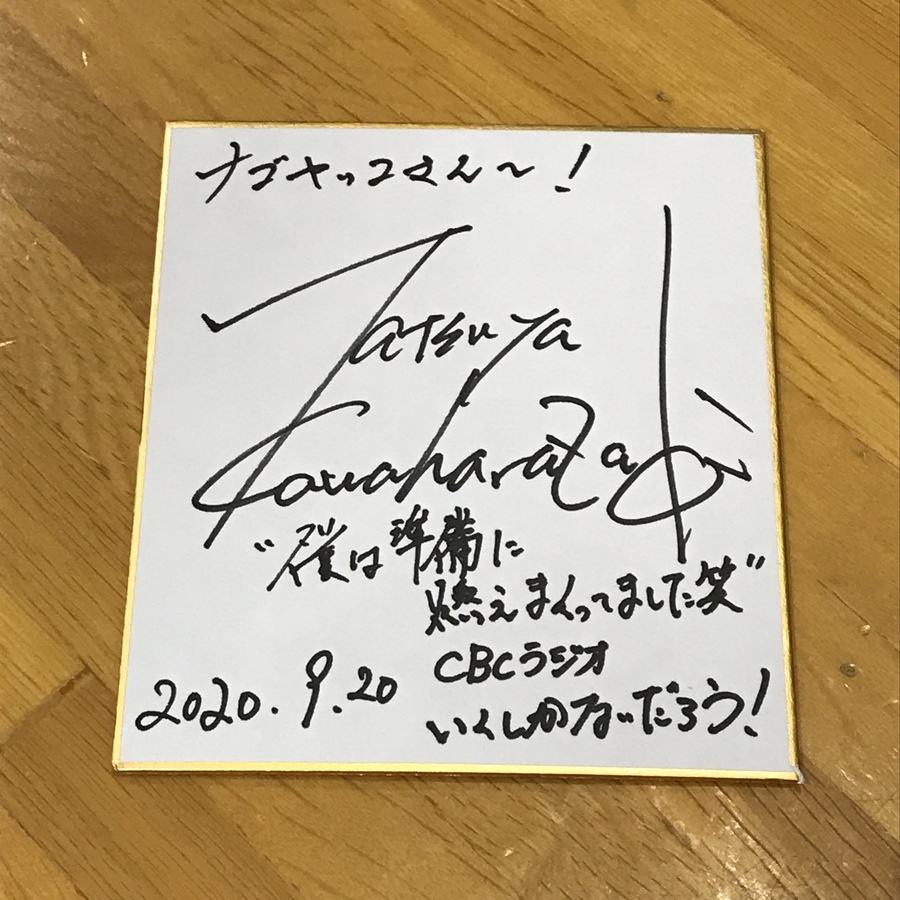 ナゴヤッコさん〜！
Tatsuya
Kawaharazaki
"僕は準備に
燃えまくってました笑"
CBCラジオ
いくしかないだろう！
2020.9.20